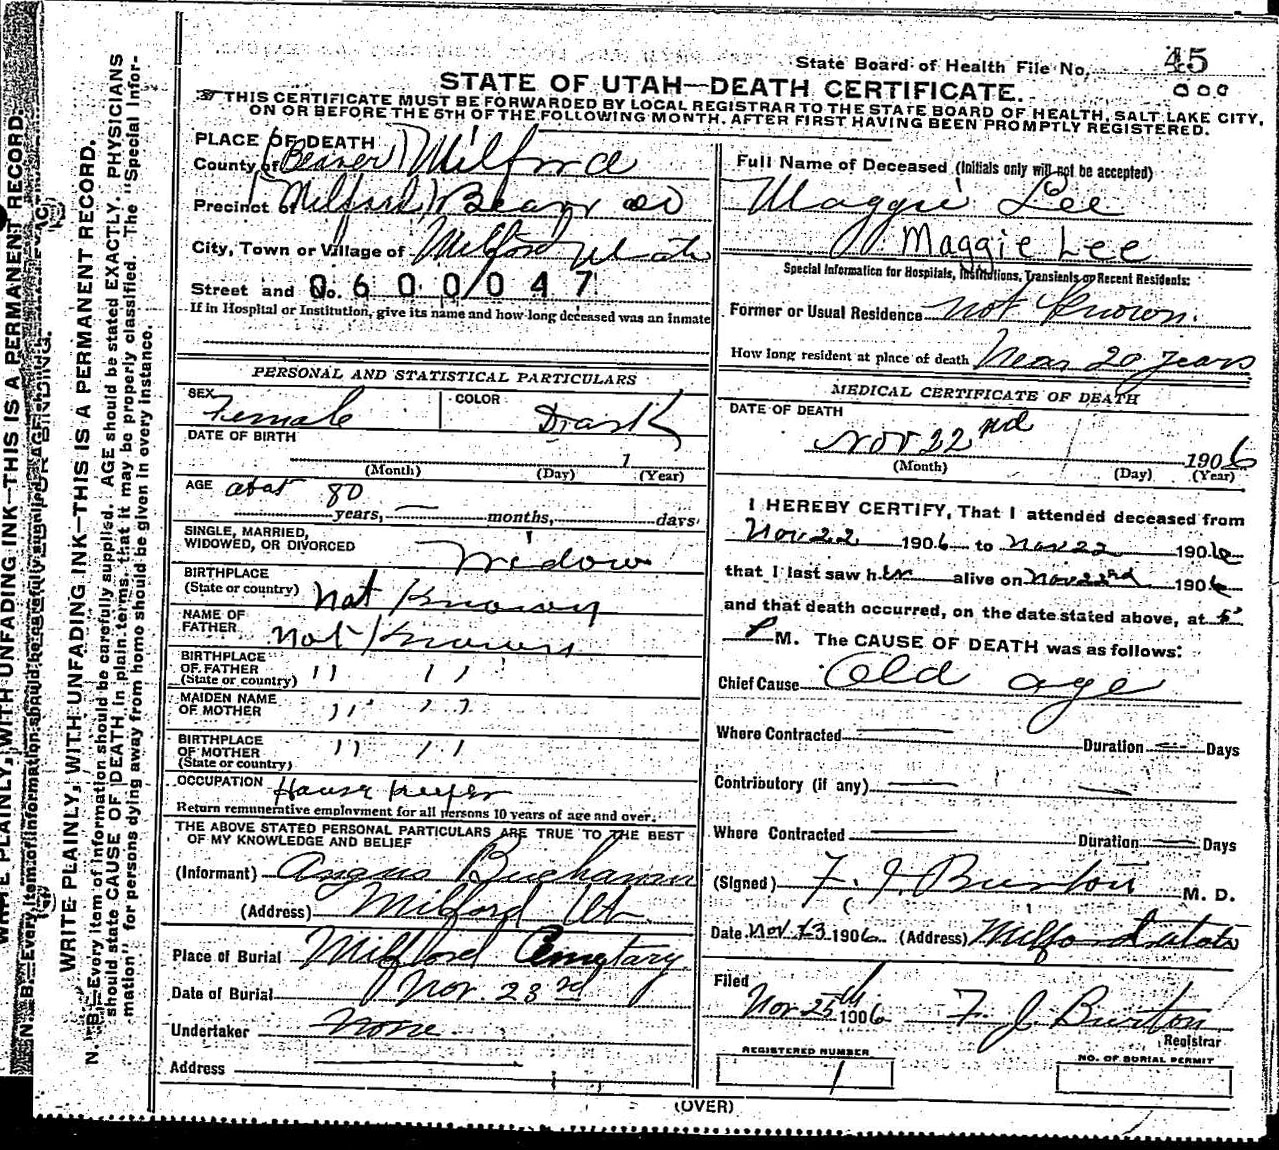 State Board of Health File No. 45
000
STATE OF UTAH—DEATH CERTIFICATE.
THIS CERTIFICATE MUST BE FORWARDED BY LOCAL REGISTRAR TO THE STATE BOARD OF HEALTH, SALT LAKE CITY,
ON OR BEFORE THE 5TH OF THE FOLLOWING MONTH, AFTER FIRST HAVING BEEN PROMPTLY REGISTERED.
PLACE OF DEATH
County of (Beaver) Milford
Precinct of (Milford) Beaver co
City, Town or Village of Milford Utah
Street and No. 0600047
If in Hospital or Institution, give its name and how long deceased was an inmate
PERSONAL AND STATISTICAL PARTICULARS
SEX Female COLOR
DATE OF BIRTH 1
(Month) (Day) (Year)
AGE about 80
years, — months, days
SINGLE, MARRIED,
WIDOWED, OR DIVORCED Widow
BIRTHPLACE
(State or country) Not Known
NAME OF
FATHER Not Known
BIRTHPLACE
OF FATHER
(State or country) " "
MAIDEN NAME
OF MOTHER " "
BIRTHPLACE
OF MOTHER
(State or country) " "
OCCUPATION House keeper
Return remunerative employment for all persons 10 years of age and over.
THE ABOVE STATED PERSONAL PARTICULARS ARE TRUE TO THE BEST
OF MY KNOWLEDGE AND BELIEF
(Informant) Angus Buchanan
(Address) Milford Ut.
Place of Burial Milford Cemetary
Date of Burial Nov. 23rd
Undertaker None
Address
Full Name of Deceased (Initials only will not be accepted)
Maggie Lee
Maggie Lee
Special Information for Hospitals, Institutions, Transients or Recent Residents:
Former or Usual Residence not Known.
How long resident at place of death Near 20 years
MEDICAL CERTIFICATE OF DEATH
DATE OF DEATH
Nov 22nd 1906
(Month) (Day) (Year)
I HEREBY CERTIFY, That I attended deceased from
Nov 22 1906 to Nov 22 1906
that I last saw her alive on Nov 22nd 1906
and that death occurred, on the date stated above, at 5
P M. The CAUSE OF DEATH was as follows:
Chief Cause Old age
Where Contracted — Duration — Days
Contributory (if any) —
Where Contracted — Duration — Days
(Signed) F. J. Burton M. D.
Date Nov 23 1906 (Address) Milford Utah
Filed
Nov 25th 1906 F. J. Burton
Registrar
REGISTERED NUMBER
1
NO. OF BURIAL PERMIT
(OVER)
WRITE PLAINLY, WITH UNFADING INK—THIS IS A PERMANENT RECORD.
N. B.—Every item of information should be carefully supplied. AGE should be stated EXACTLY. PHYSICIANS
should state CAUSE OF DEATH in plain terms, that it may be properly classified. The "Special Infor-
mation" for persons dying away from home should be given in every instance.
WRITE PLAINLY, WITH UNFADING INK—THIS IS A PERMANENT RECORD.
N. B.—Every item of information should be carefully supplied
BINDING.